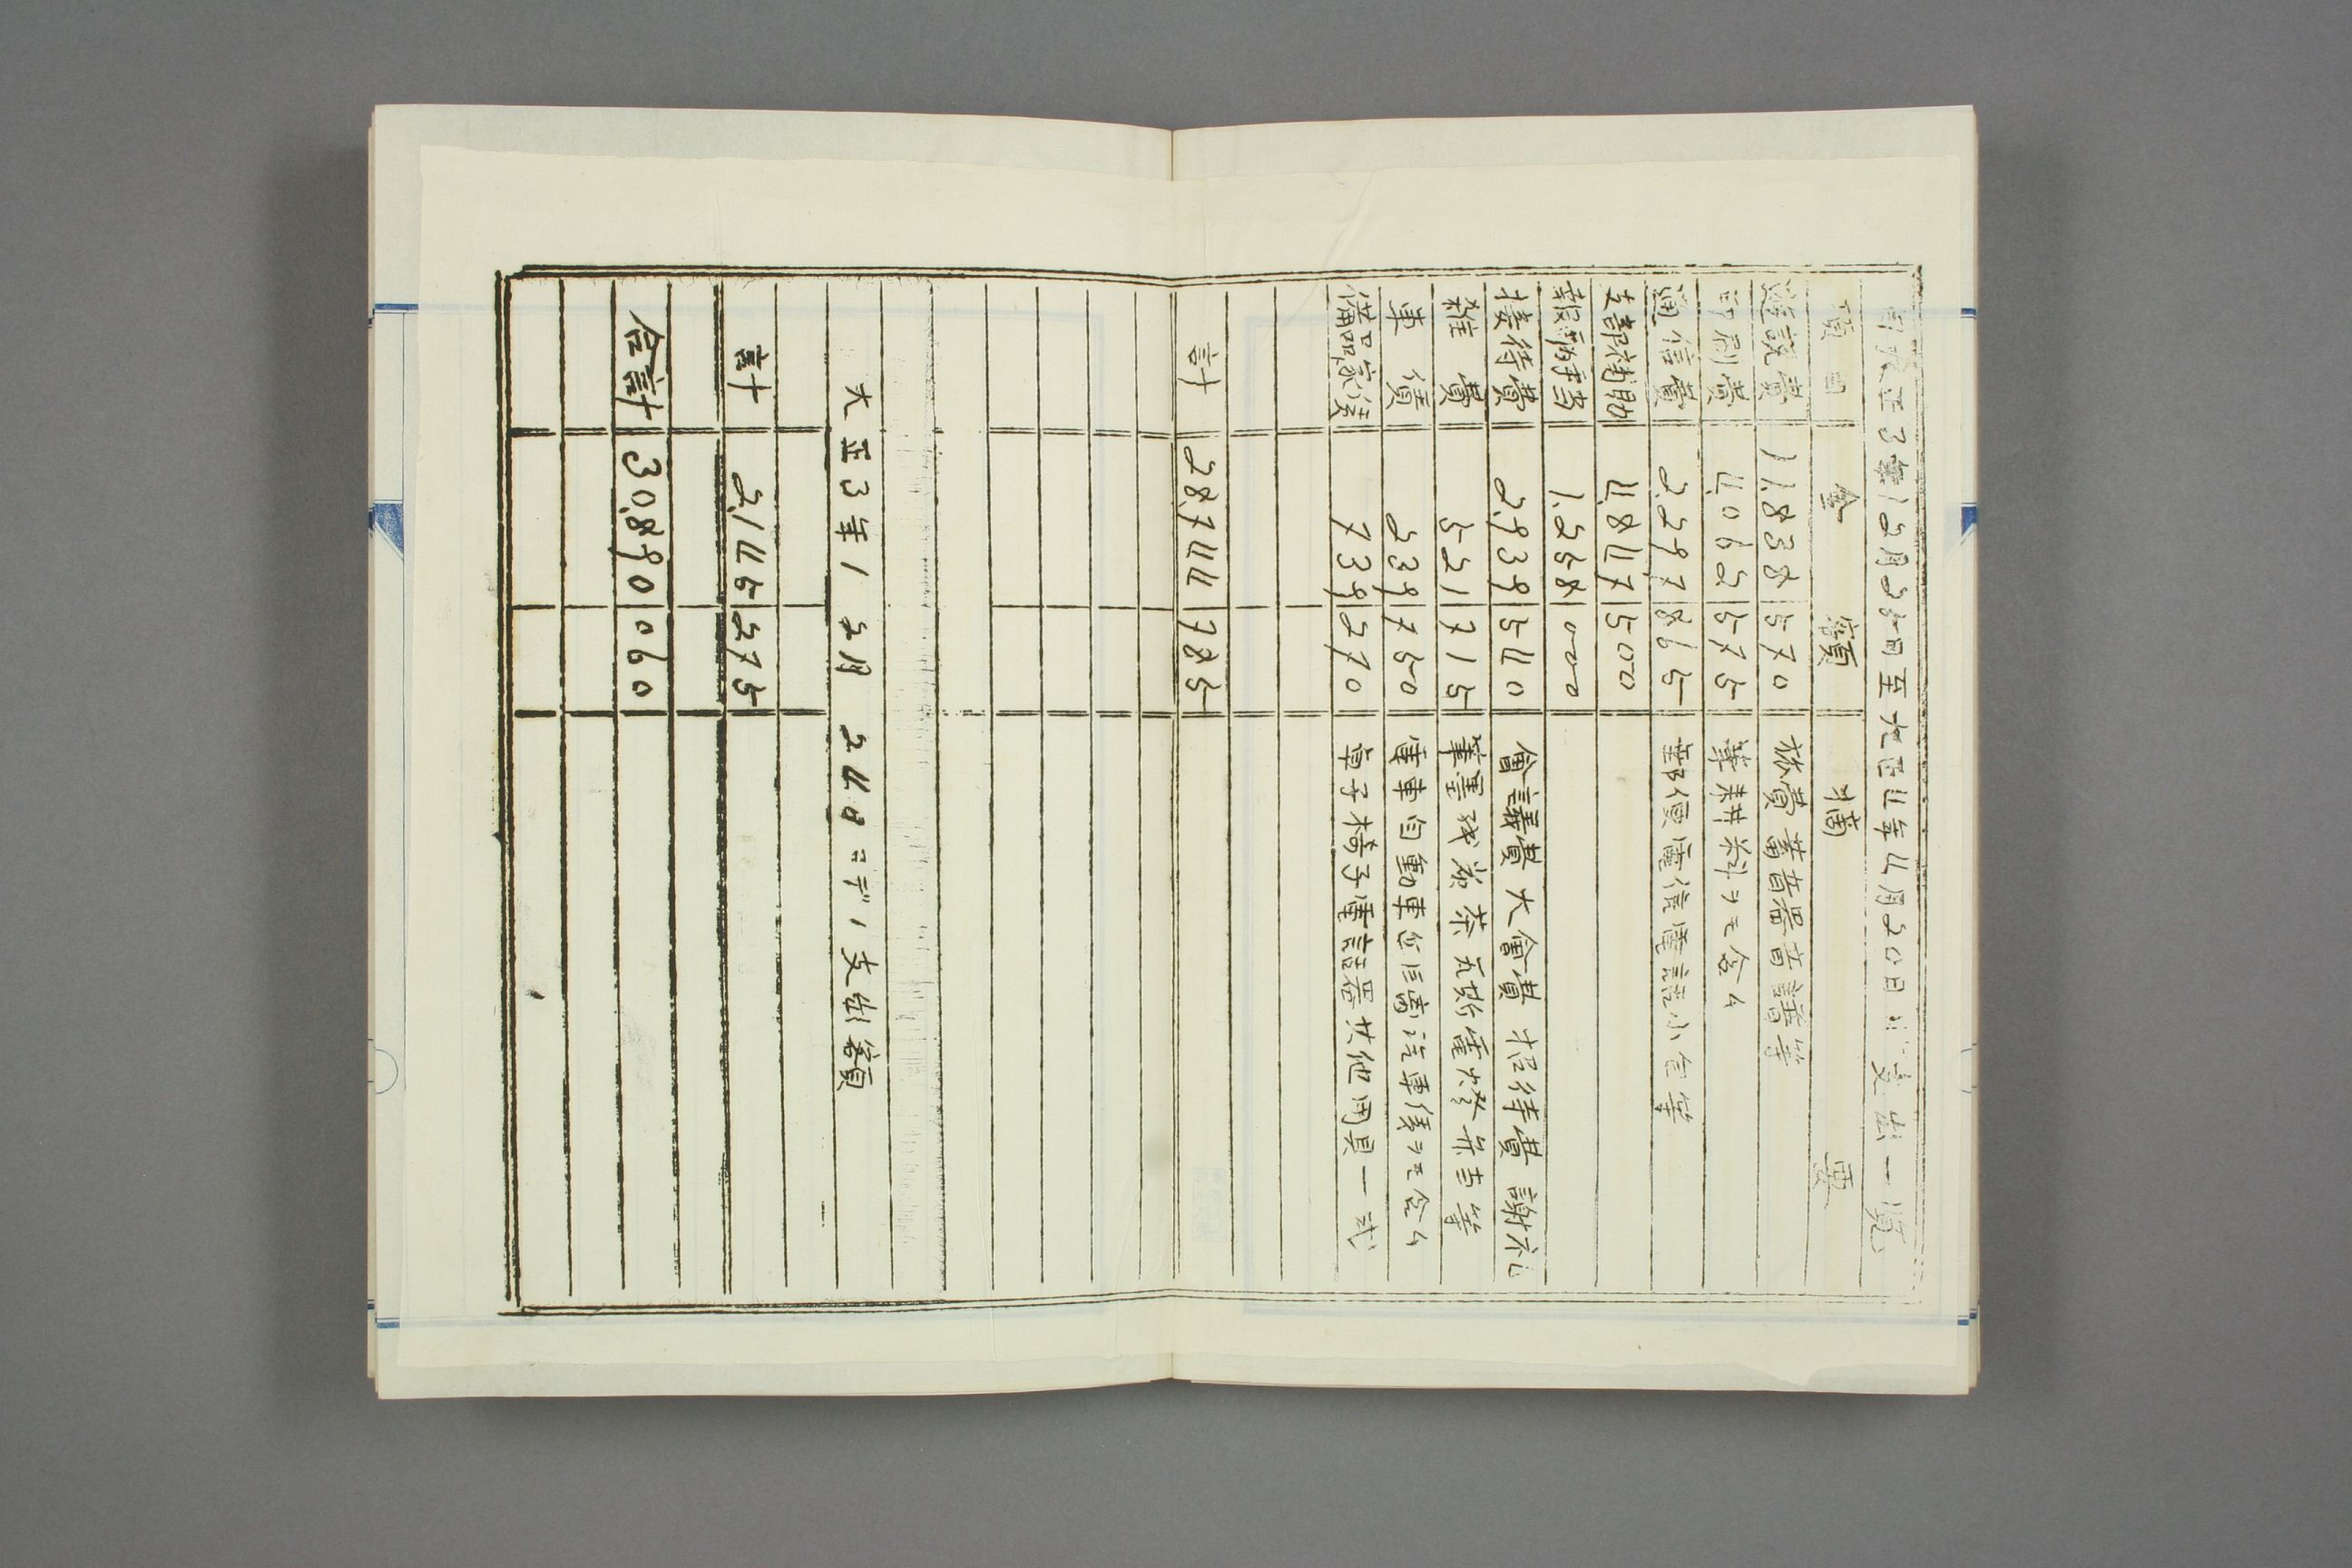 自大正3年12月25日至大正4年4月20日 支出一覧
項目 金額 摘要
遊説費 11,838 570 旅費 蓄音器音譜等
印刷費 4,062 575 筆耕料ヲモ含ム
通信費 2,297 865 郵便電信電話小包等
支部補助 4,847 500
報酬手当 1,258 000
接待費 2,939 540 會議費 大會費 招待費 謝礼
雑費 521 715 筆墨紙炭茶瓦斯電燈弁当等
車賃 239 750 電車自動車 汽車賃ヲモ含ム
備品家具 739 270 卓子椅子電話器其他用具一式
計 28,744 785
大正3年12月24日マデノ支出額
計 2,145 275
合計 30,890 060